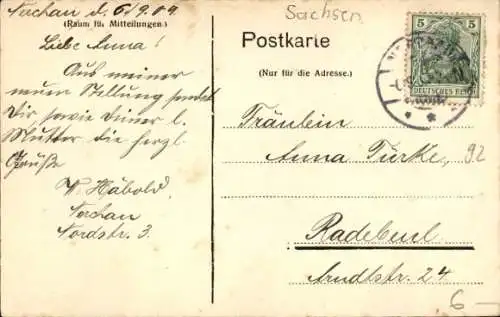 Nerchau d. 6/9.09.
(Raum für Mitteilungen.)
Liebe Anna!
Aus meiner
neuen Stellung sendet
Dir, sowie Deiner l.
Mutter die herzl.
Grüße
W. Häbold
Nerchau
Nordstr. 3.
Sachsen
Postkarte
(Nur für die Adresse.)
5 5
DEUTSCHES REICH
Fräulein
Anna Türke,
92
Radebeul
Arndtstr. 24
6-